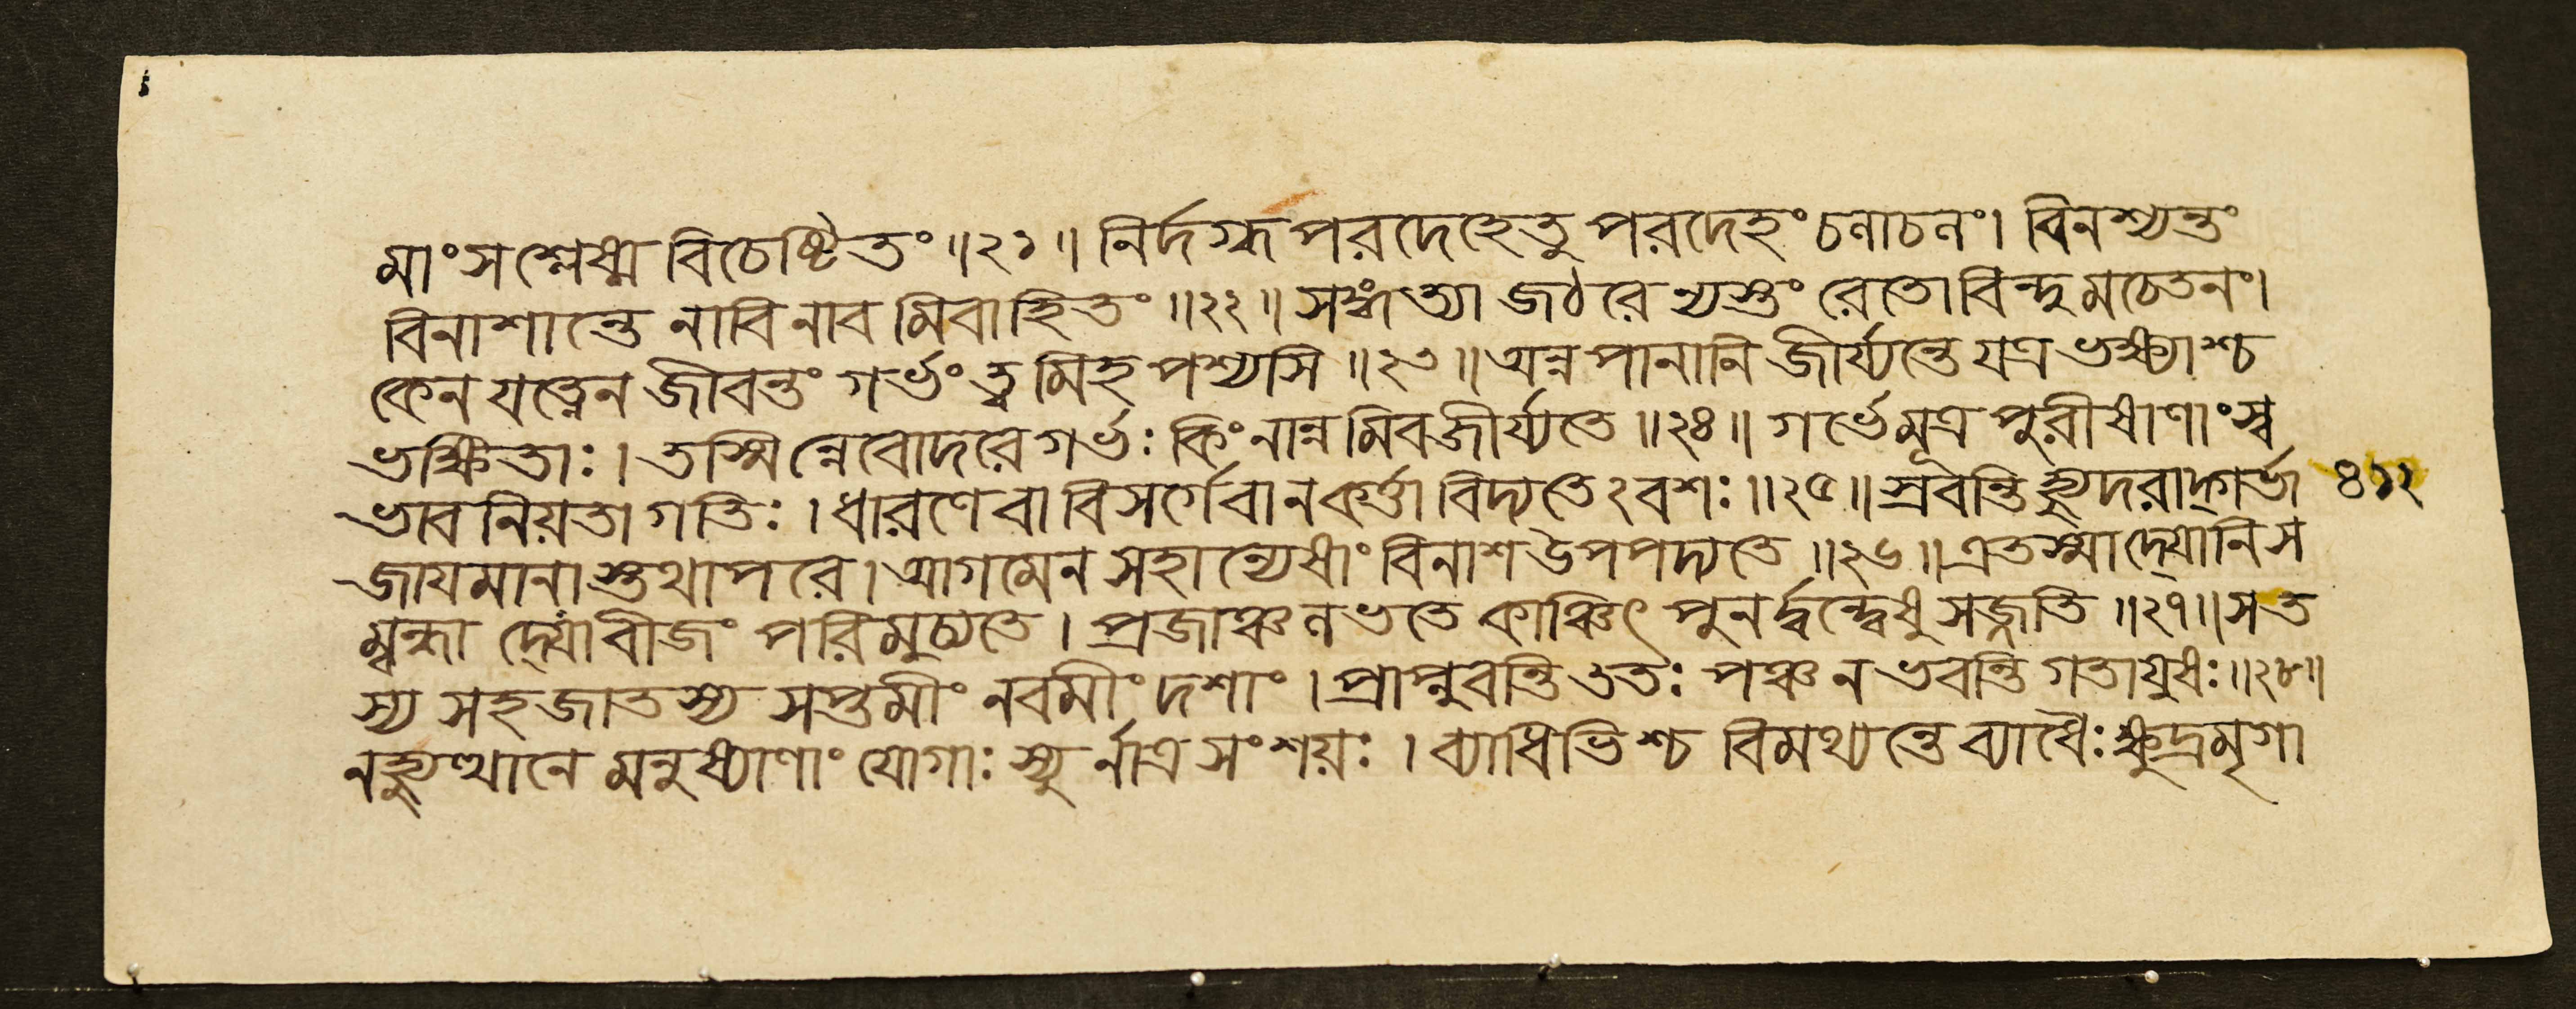 মাংসশ্লেষ্মবিচেষ্টিতং॥২১॥নির্দগ্ধম্পরদেহেতুপরদেহং চলাচলং। বিনশ্যন্তং
বিনাশান্তে নাবি নাব মিবাহিতং॥২২॥সঙ্গত্যা জঠরে ন্যস্তং রেতোবিন্দুমচেতনং।
কেন যত্নেন জীবন্তং গর্ভং ত্বমিহ পশ্যসি॥২৩॥অন্নপানানি জীর্য্যন্তে যত্র ভক্ষ্যাশ্চ
ভক্ষিতাঃ। তস্মিন্নেবোদরে গর্ভঃ কিং নান্নমিব জীর্য্যতে॥২৪॥গর্ভেমূত্রপুরীষাণাংস্ব
ভাবনিয়তা গতিঃ। ধারণেবা বিসর্গেবা ন কর্ত্তা বিদ্যতেঽবশঃ॥২৫॥স্রবন্তি হ্যুদরাদ্গর্ভা ৪১২
জায়মানাস্তথাপরে। আগমেন সহান্যেষাং বিনাশ উপপদ্যতে॥২৬॥এতস্মাদ্যোনিস
ম্বন্ধাদ্যো বীজং পরিমুচ্যতে। প্রজাঞ্চ লভতে কাঞ্চিৎ পুনর্দ্বন্দ্বেষু সজ্জতি॥২৭॥সত
স্য সহজাতস্য সপ্তমীং নবমীং দশাং। প্রাপ্নুবন্তি ততঃ পঞ্চ ন ভবন্তি গতায়ুষঃ॥২৮॥
নহ্যুত্থানে মনুষ্যাণাং যোগাঃ স্যুর্নাত্রসংশয়ঃ। ব্যাধিভিশ্চ বিমথ্যন্তে ব্যাধৈঃ ক্ষুদ্রমৃগা